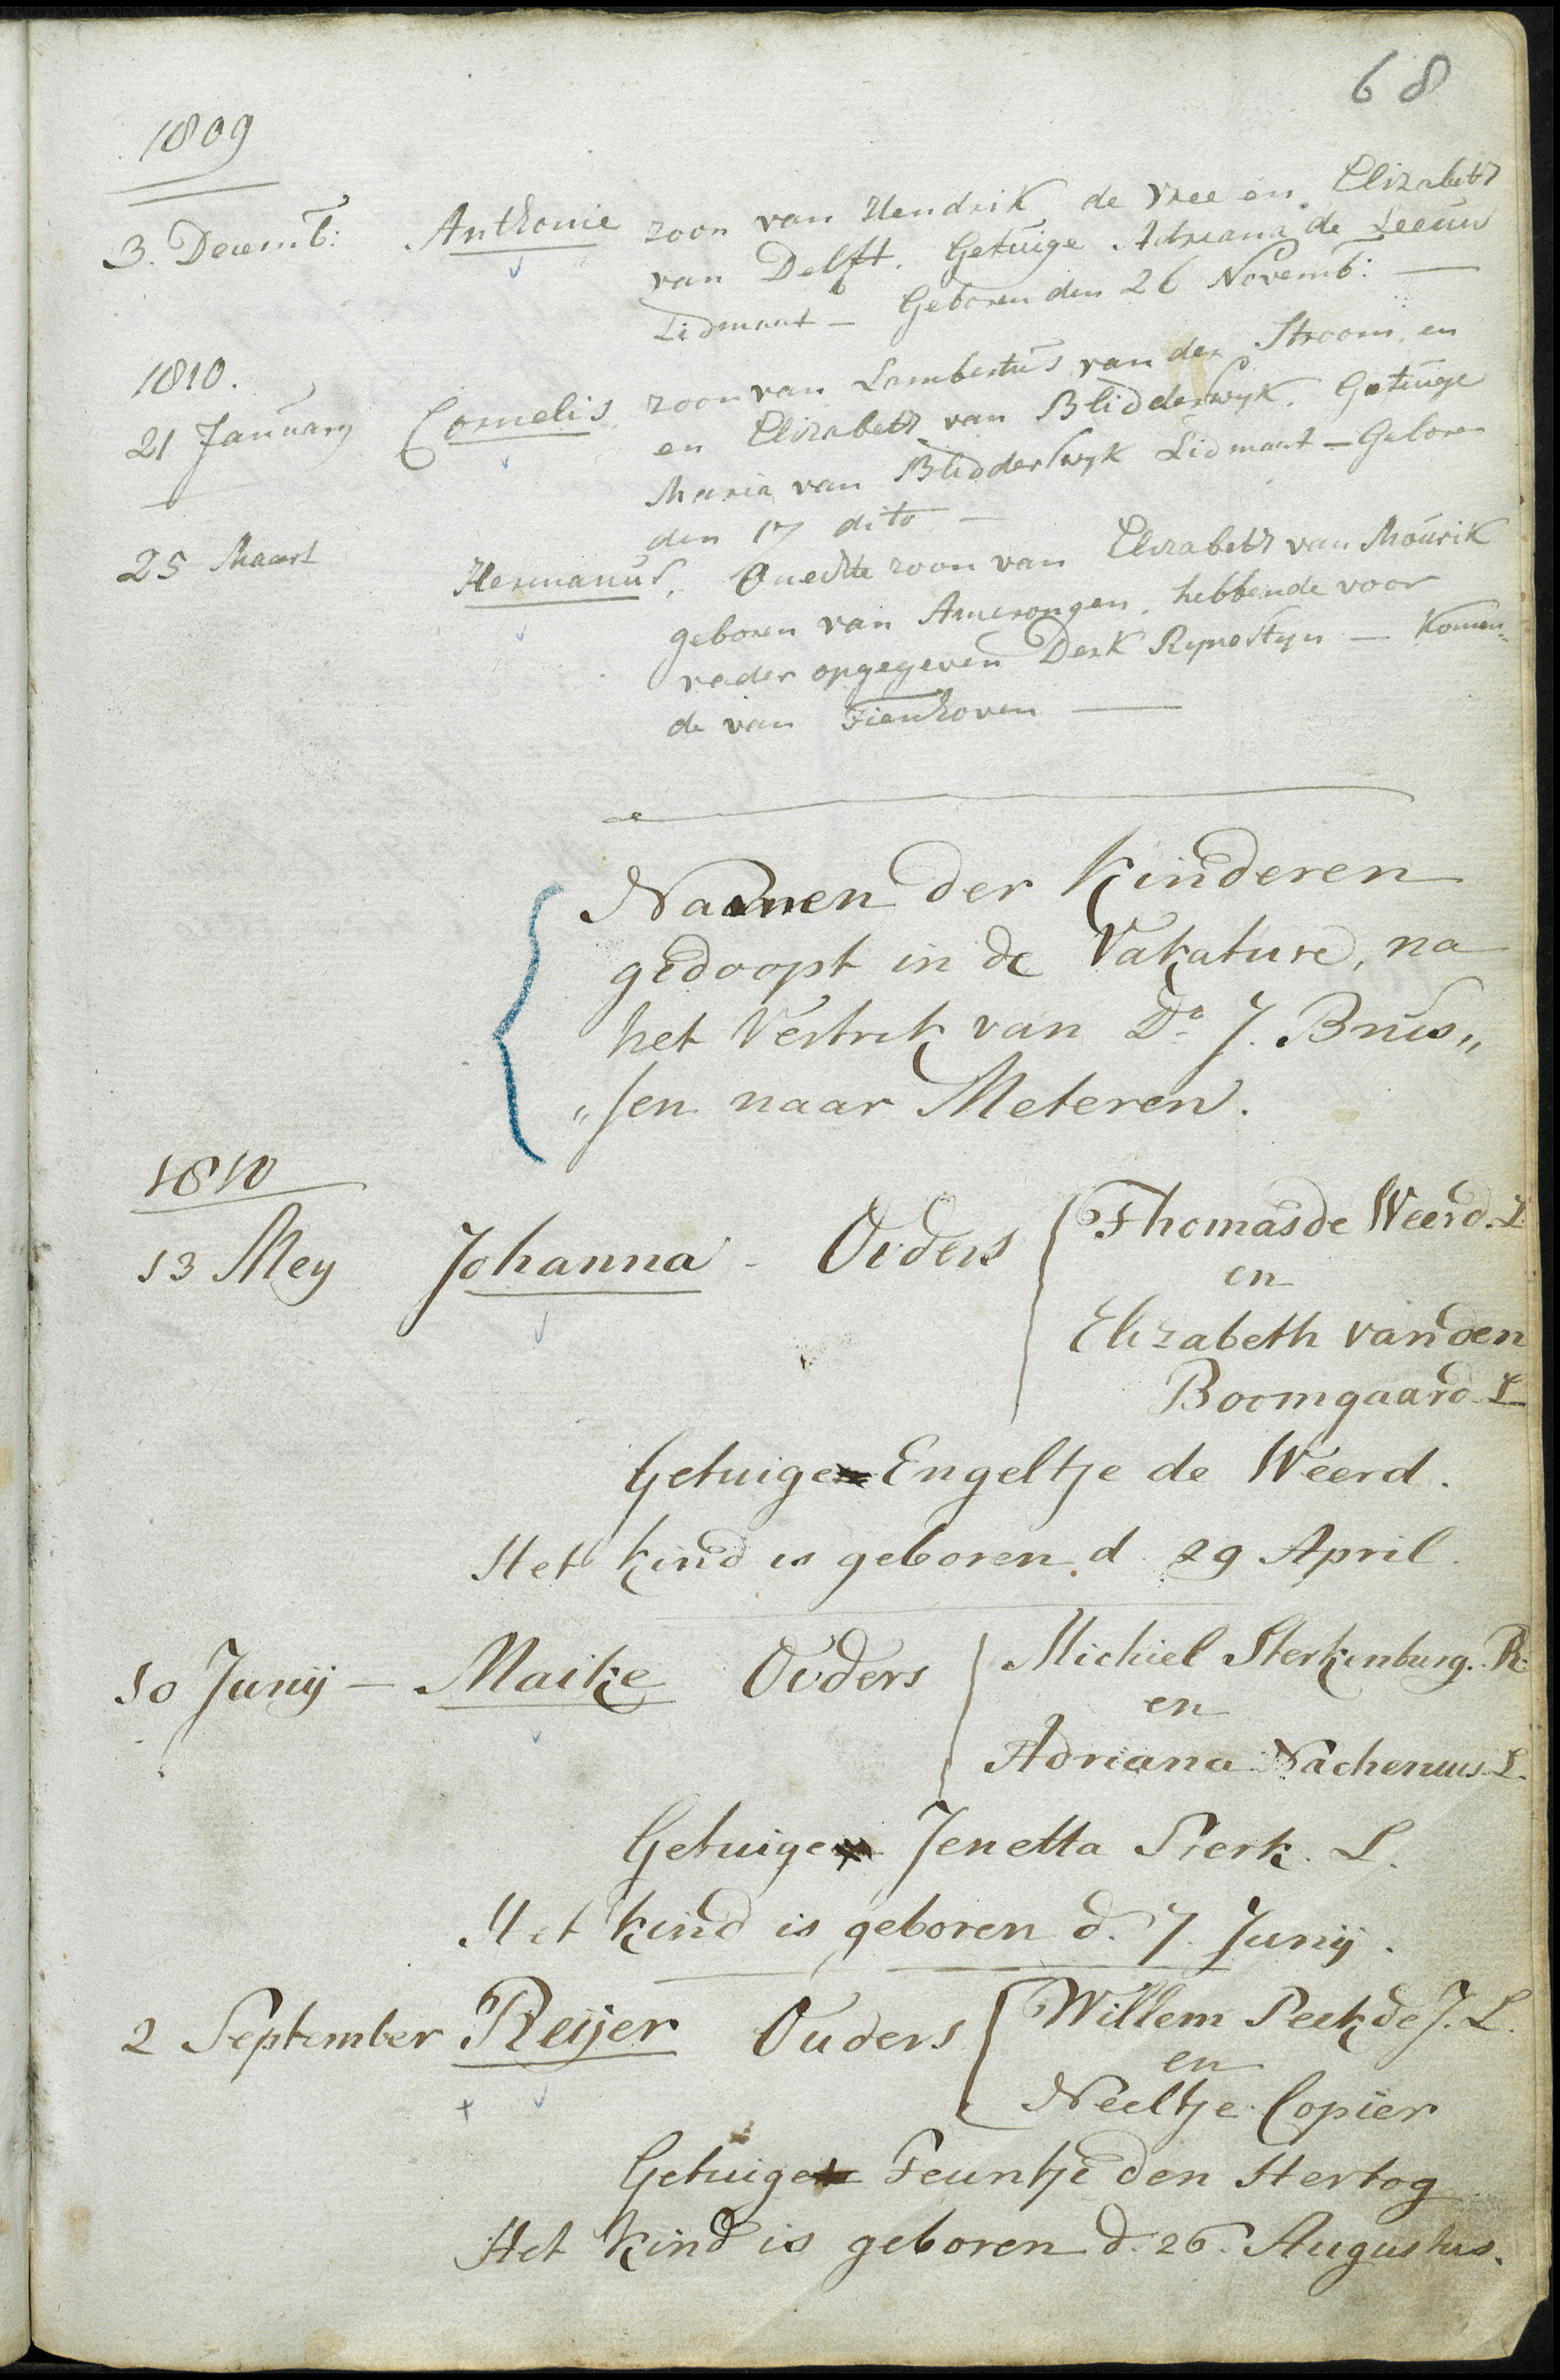 68
1809
3. Decemb: Anthonie zoon van Hendrik de Vree en Elizabeth
van Delft. Getuige Adriana de Leeuw
Lidmaat — Geboren den 26 Novemb: —
1810.
21 January Cornelis zoon van Lambertus van der Stroom en
en Elizabeth van Blidderswyk. Getuige
Maria van Blidderswyk Lidmaat — Geboren
den 17 dito —
25 Maart Hermanus, Onechte zoon van Elizabeth van Mourik
geboren van Amerongen, hebbende voor
vader opgegeven Derk Rynestyn — Komen-
de van Tienhoven —
Naamen der Kinderen
gedoopt in de Vakature, na
het Vertrek van Ds. J. Brus„
„sen naar Meteren.
1810
13 Mey Johanna - Ouders Thomas de Weerd. L
en
Elizabeth van den
Boomgaard L
Getuige Engeltje de Weerd.
Het kind is geboren d. 29 April.
10 Junij — Maike Ouders Michiel Sterkenburg. R.
en
Adriana Nachenius L.
Getuige Jenetta Sterk. L.
Het kind is geboren d. 7. Junij.
2 September Reijer Ouders Willem Peek de J. L.
en
Neeltje Copier
Getuige Teuntje den Hertog
Het kind is geboren d. 26. Augustus.